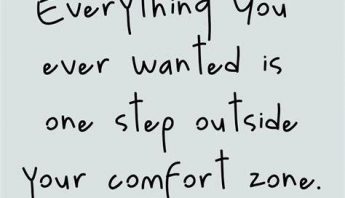 Everything you
ever wanted is
one step outside
your comfort zone.